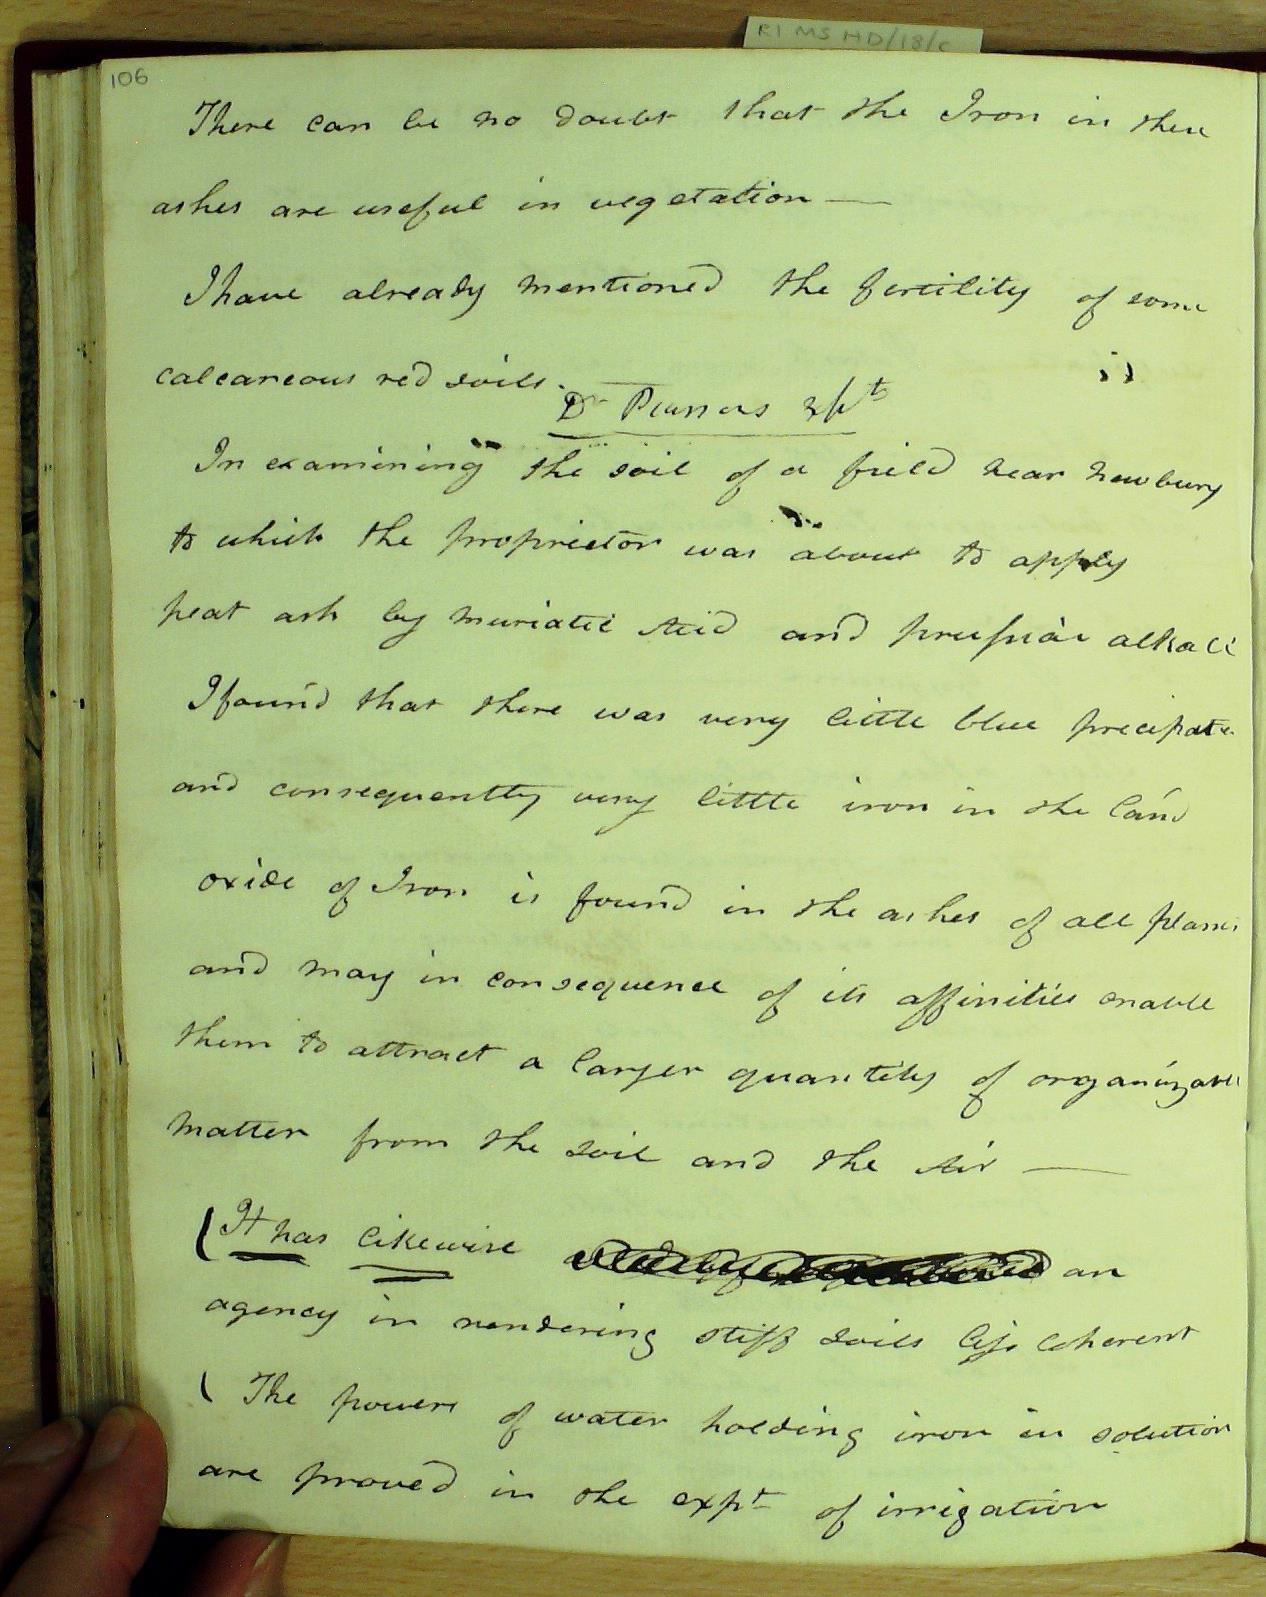 RI MS HD/18/c
106
There can be no doubt that the Iron in these
ashes are useful in vegetation —
I have already mentioned the fertility of some
calcareous red soils.
Dr
In examining the soil of a field near Newbury
to which the proprietor was about to apply
peat ash by muriatic Acid and prussiac alkali
I found that there was very little blue precipate
and consequently very little iron in the land
oxide of Iron is found in the ashes of all plants
and may in consequence of its affinities enable
them to attract a larger quantity of organizable
matter from the soil and the Air —
(It has likewise an
agency in rendering stiff soils less coherent
( The powers of water holding iron in solution
are proved in the expt of irrigation